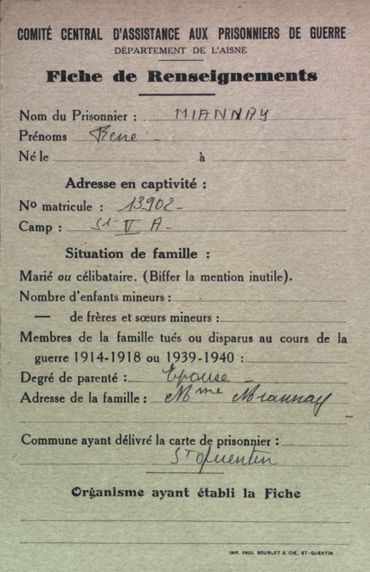 COMITÉ CENTRAL D'ASSISTANCE AUX PRISONNIERS DE GUERRE
DÉPARTEMENT DE L'AISNE
Fiche de Renseignements
Nom du Prisonnier : MIANNAY
Prénoms René
Né le à
Adresse en captivité :
No matricule : 13902
Camp : St V A
Situation de famille :
Marié ou célibataire. (Biffer la mention inutile).
Nombre d'enfants mineurs :
— de frères et sœurs mineurs :
Membres de la famille tués ou disparus au cours de la
guerre 1914-1918 ou 1939-1940 :
Degré de parenté : Epouse
Adresse de la famille : Mme Miannay
Commune ayant délivré la carte de prisonnier :
St Quentin
Organisme ayant établi la Fiche
IMP. PAUL BOURLET & CIE, ST-QUENTIN